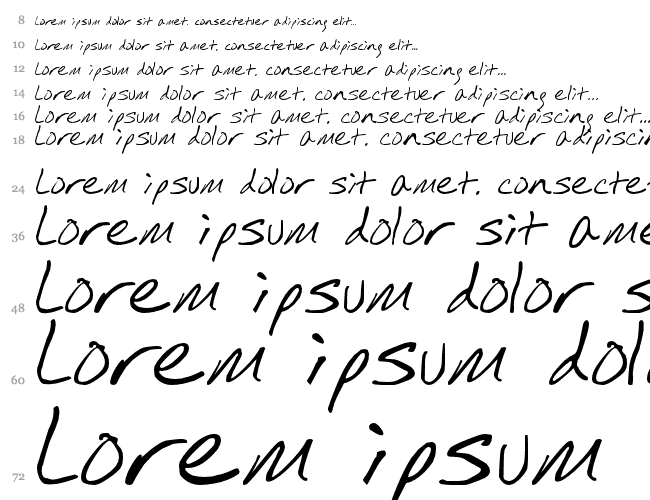 8 Lorem ipsum dolor sit amet. consectetuer adipiscing elit...
10 Lorem ipsum dolor sit amet. consectetuer adipiscing elit...
12 Lorem ipsum dolor sit amet. consectetuer adipiscing elit...
14 Lorem ipsum dolor sit amet. consectetuer adipiscing elit...
16 Lorem ipsum dolor sit amet. consectetuer adipiscing elit...
18 Lorem ipsum dolor sit amet. consectetuer adipiscin
24 Lorem ipsum dolor sit amet. consecte
36 Lorem ipsum dolor sit ame
48 Lorem ipsum dolor s
60 Lorem ipsum dol
72 Lorem ipsum